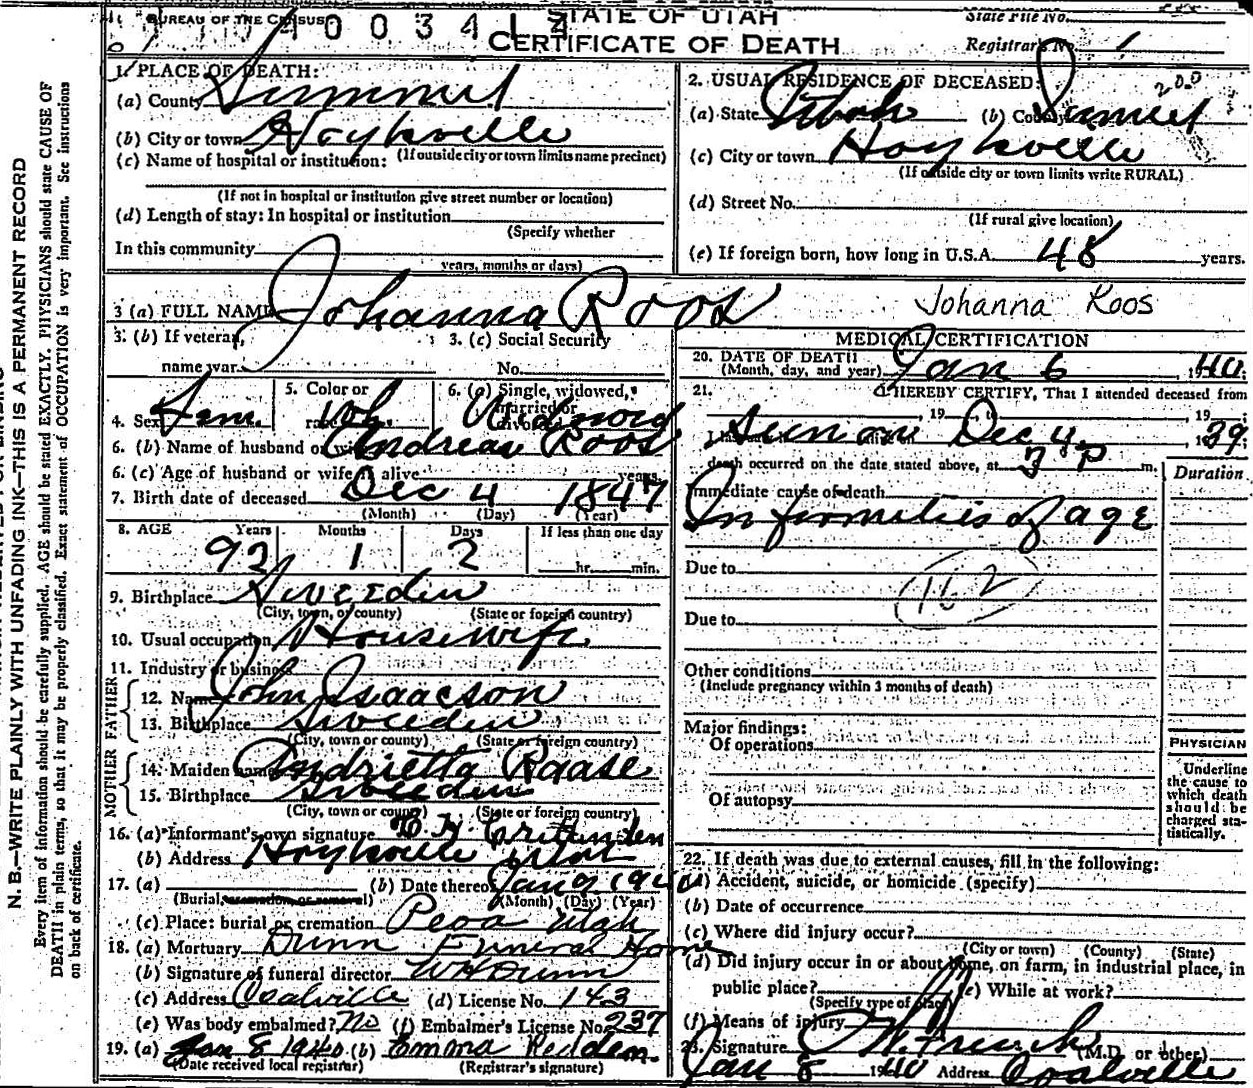 BUREAU OF THE CENSUS
4 0 0 3 4 1 4
STATE OF UTAH
CERTIFICATE OF DEATH
State File No.
Registrar's No. 1
N. B.—WRITE PLAINLY WITH UNFADING INK—THIS IS A PERMANENT RECORD
Every item of information should be carefully supplied. AGE should be stated EXACTLY. PHYSICIANS should state CAUSE OF
DEATH in plain terms, so that it may be properly classified. Exact statement of OCCUPATION is very important. See instructions
on back of certificate.
1. PLACE OF DEATH:
(a) County Summit
(b) City or town Hoytsville
(If outside city or town limits name precinct)
(c) Name of hospital or institution:
(If not in hospital or institution give street number or location)
(d) Length of stay: In hospital or institution
(Specify whether
In this community
years, months or days)
2. USUAL RESIDENCE OF DECEASED:
200
(a) State Utah (b) County Summit
(c) City or town Hoytsville
(If outside city or town limits write RURAL)
(d) Street No.
(If rural give location)
(e) If foreign born, how long in U.S.A. 48 years.
3 (a) FULL NAME Johanna Roos
Johanna Roos
3. (b) If veteran,
name war
3. (c) Social Security
No.
4. Sex Fem.
5. Color or
race Wh.
6. (a) Single, widowed,
married or
divorced Widowed
6. (b) Name of husband or wife Andreas Roos
6. (c) Age of husband or wife if alive years
7. Birth date of deceased Dec 4 1847
(Month) (Day) (Year)
8. AGE Years Months Days If less than one day
92 1 2 hr. min.
9. Birthplace Sweeden
(City, town, or county) (State or foreign country)
10. Usual occupation Housewife
11. Industry or business
FATHER
12. Name John Isaacson
13. Birthplace Sweeden
(City, town or county) (State or foreign country)
MOTHER
14. Maiden name Andrietta Raase
15. Birthplace Sweeden
(City, town or county) (State or foreign country)
16. (a) Informant's own signature Crittenden
(b) Address Hoytsville Utah
17. (a) (b) Date thereof Jan 9 1940
(Burial, cremation or removal) (Month) (Day) (Year)
(c) Place: burial or cremation Peoa Utah
18. (a) Mortuary Dunn Funeral Home
(b) Signature of funeral director W H Dunn
(c) Address Coalville (d) License No. 143
(e) Was body embalmed? No (f) Embalmer's License No. 237
19. (a) Jan 8 1940 (b) Emma Redden.
(Date received local registrar) (Registrar's signature)
MEDICAL CERTIFICATION
20. DATE OF DEATH
(Month, day, and year) Jan 6, 1940.
21. I HEREBY CERTIFY, That I attended deceased from
, 19 , to , 19 ;
I last seen on Dec 4, 1939
death occurred on the date stated above, at 3 P m.
Duration
Immediate cause of death
Infirmities of age
Due to
162
Due to
Other conditions
(Include pregnancy within 3 months of death)
Major findings:
Of operations
Of autopsy
PHYSICIAN
Underline
the cause to
which death
should be
charged sta-
tistically.
22. If death was due to external causes, fill in the following:
(a) Accident, suicide, or homicide (specify)
(b) Date of occurrence
(c) Where did injury occur?
(City or town) (County) (State)
(d) Did injury occur in or about home, on farm, in industrial place, in
public place? (e) While at work?
(Specify type of place)
(f) Means of injury
23. Signature (M.D. or other)
Jan 8 1940 Address Coalville